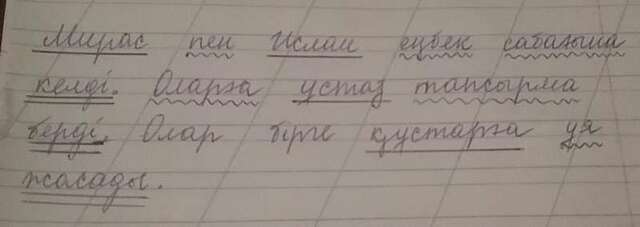 Мирас пен Ислам еңбек сабағына
келді. Оларға ұстаз тапсырма
берді. Олар бірге құстарға ұя
жасады.